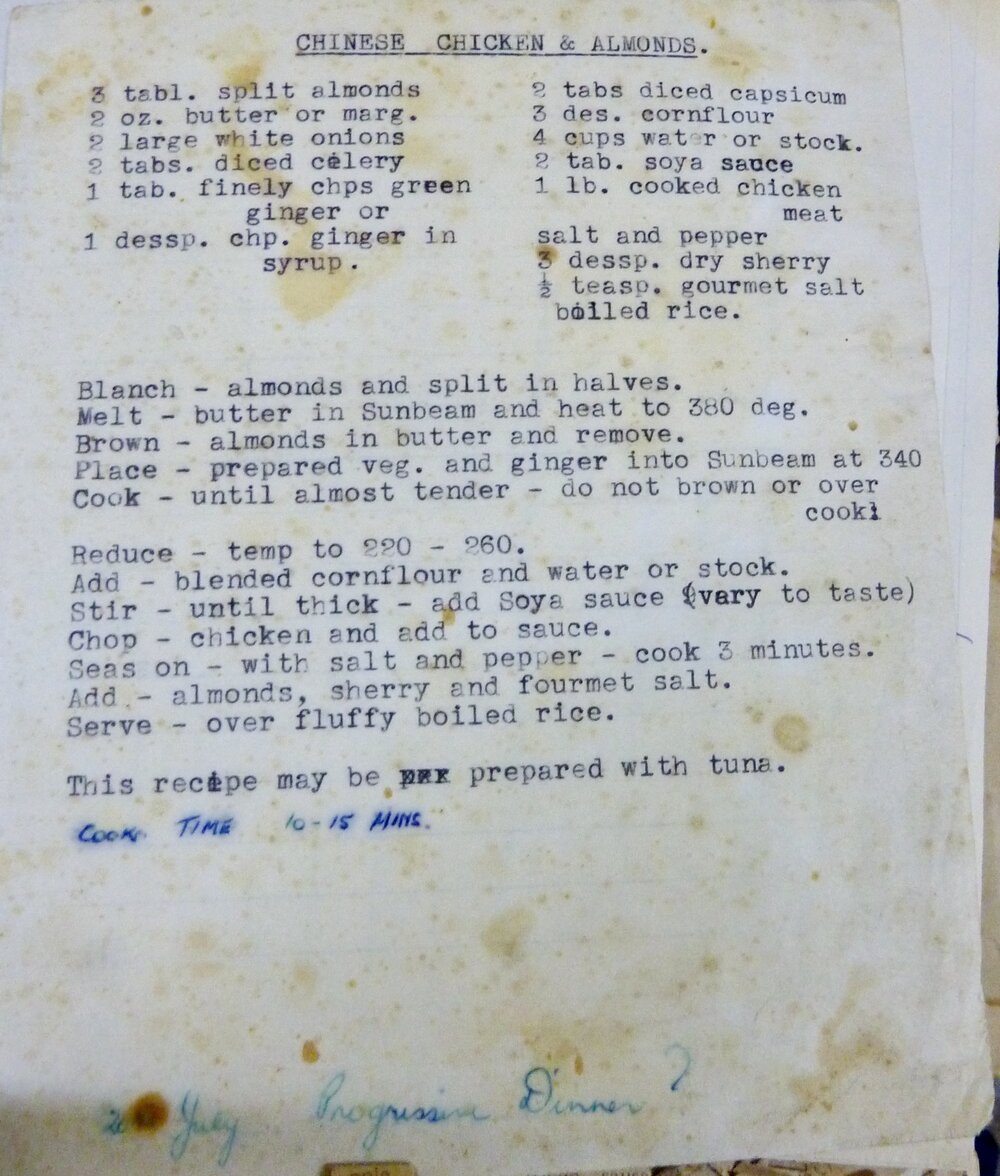 CHINESE CHICKEN & ALMONDS.
3 tabl. split almonds
2 oz. butter or marg.
2 large white onions
2 tabs. diced celery
1 tab. finely chps green
ginger or
1 dessp. chp. ginger in
syrup.
2 tabs diced capsicum
3 des. cornflour
4 cups water or stock.
2 tab. soya sauce
1 lb. cooked chicken
meat
salt and pepper
3 dessp. dry sherry
½ teasp. gourmet salt
boiled rice.
Blanch - almonds and split in halves.
Melt - butter in Sunbeam and heat to 380 deg.
Brown - almonds in butter and remove.
Place - prepared veg. and ginger into Sunbeam at 340
Cook - until almost tender - do not brown or over
cook!
Reduce - temp to 220 - 260.
Add - blended cornflour and water or stock.
Stir - until thick - add Soya sauce (vary to taste)
Chop - chicken and add to sauce.
Seas on - with salt and pepper - cook 3 minutes.
Add - almonds, sherry and fourmet salt.
Serve - over fluffy boiled rice.
This recipe may be prepared with tuna.
COOK TIME 10-15 MINS.
July Progressive Dinner ?